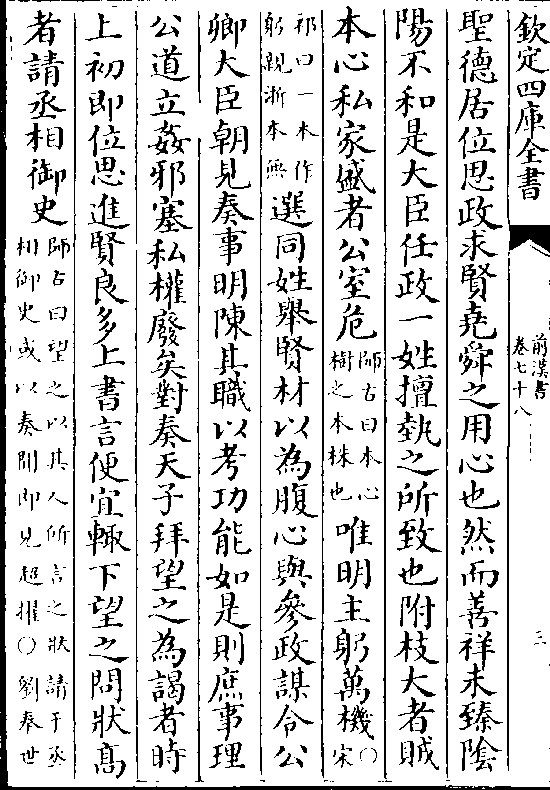 欽定四庫全書
前漢書
卷七十八
三
聖德居位思政求賢堯舜之用心也然而善祥未臻陰
陽不和是大臣任政一姓擅執之所致也附枝大者賊
本心私家盛者公室危師古曰本心樹之本株也唯明主躬萬機〇宋
祁曰一本作躬親浙本無選同姓舉賢材以為腹心與參政謀令公
卿大臣朝見奏事明陳其職以考功能如是則庶事理
公道立姦邪塞私權廢矣對奏天子拜望之為謁者時
上初即位思進賢良多上書言便宜輙下望之問狀髙
者請丞相御史師古曰望之以其人所言之狀請于丞相御史或以奏聞即見超擢〇劉奉世